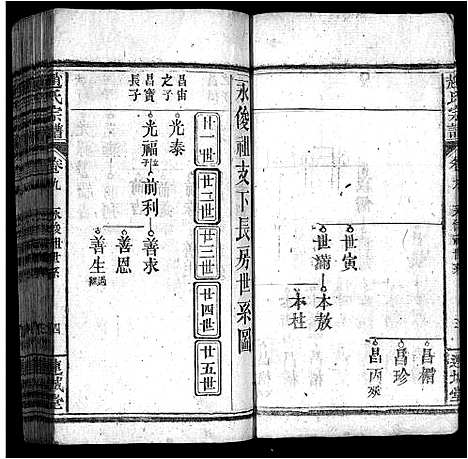 趙氏宗譜
世寅
世滿
本敖
本杜
昌榴
昌珍
昌丙
永俊祖支下長房世系圖
廿一世
廿二世
廿三世
廿四世
廿五世
昌宙之子
光泰
昌寶長子
光福
前利
善求
善恩
善生
趙氏宗譜
卷九
永俊世世系
四
連城堂